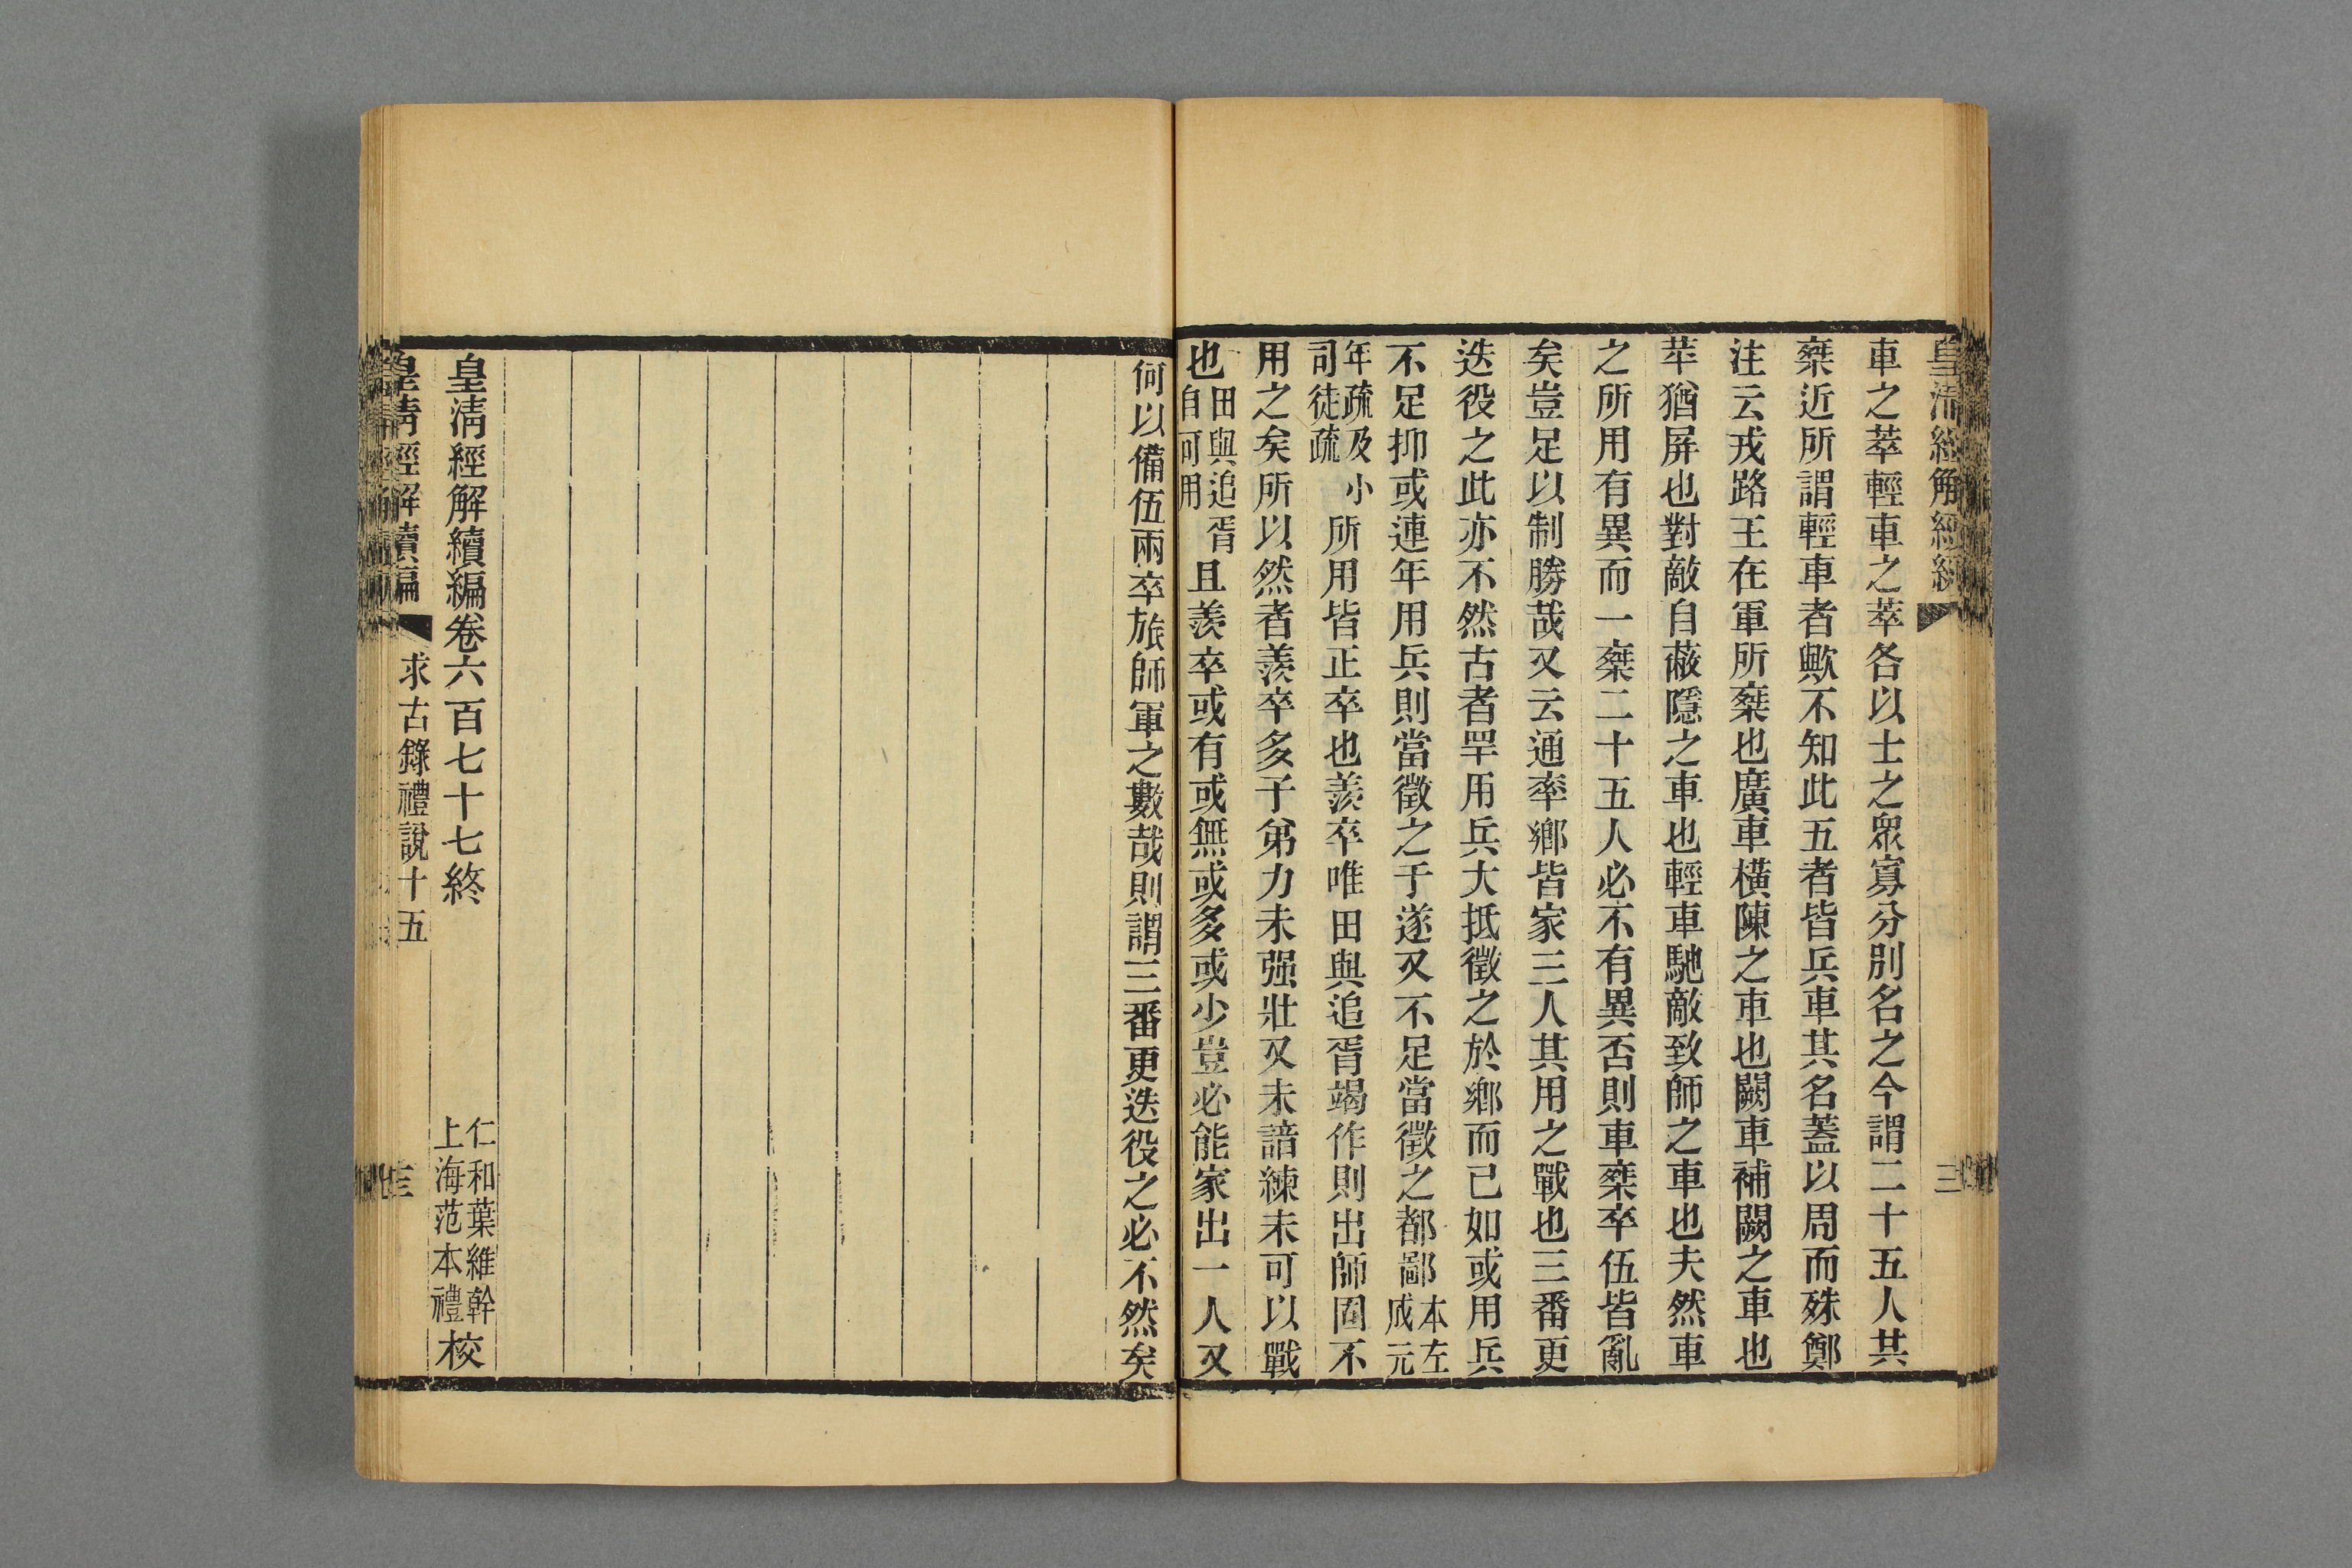 皇清經解經續
三
車之萃輕車之萃各以士之眾寡分別名之今謂二十五人共
椉近所謂輕車者歟不知此五者皆兵車其名蓋以周而殊鄭
注云戎路王在軍所椉也廣車橫陳之車也闕車補闕之車也
苹猶屏也對敵自蔽隱之車也輕車馳敵致師之車也夫然車
之所用有異而一椉二十五人必不有異否則車椉卒伍皆亂
矣豈足以制勝哉又云通率鄉皆家三人其用之戰也三番更
迭役之此亦不然古者罕用兵大抵徵之於鄉而已如或用兵
不足抑或連年用兵則當徵之于遂又不足當徵之都鄙本左成元
年疏及小司徒疏所用皆正卒也羨卒唯田與追胥竭作則出師圍不
用之矣所以然者羨卒多子弟力未强壯又未諳練未可以戰
也田與追胥自可用且羨卒或有或無或多或少豈必能家出一人又
何以備伍兩卒旅師軍之數哉則謂三番更迭役之必不然矣
皇清經解續編卷六百七十七終
仁和葉維幹
上海范本禮
校
皇清經解續編
求古錄禮說十五